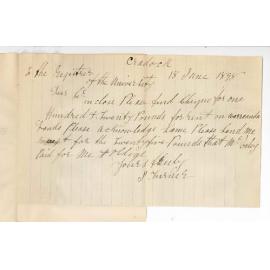 Cradock
To the Registrar 18 June 1895
of the University
Dear Sir
inclose Please find Cheque for one
Hundred & Twenty Pounds for rent on
Lands Please acknowledge same Please send me
for the Twenty five Pounds that Mr
Paid for Me & Oblige
Yours Truly
J Turner